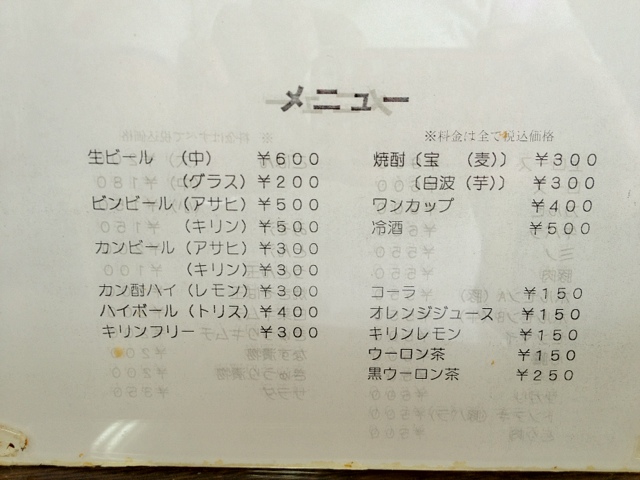 メニュー
※料金は全て税込価格
生ビール （中） ￥６００
（グラス）￥２００
ビンビール（アサヒ）￥５００
（キリン）￥５００
カンビール（アサヒ）￥３００
（キリン）￥３００
カン酎ハイ（レモン）￥３００
ハイボール（トリス）￥４００
キリンフリー ￥３００
焼酎〔宝 （麦）〕 ￥３００
〔白波（芋）〕 ￥３００
ワンカップ ￥４００
冷酒 ￥５００
コーラ ￥１５０
オレンジジュース ￥１５０
キリンレモン ￥１５０
ウーロン茶 ￥１５０
黒ウーロン茶 ￥２５０